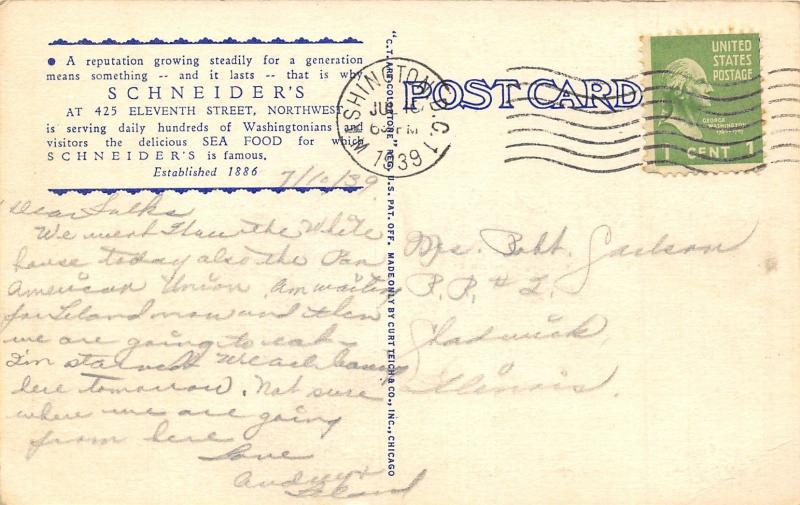 ● A reputation growing steadily for a generation
means something -- and it lasts -- that is why
SCHNEIDER'S
AT 425 ELEVENTH STREET, NORTHWEST
is serving daily hundreds of Washingtonians and
visitors the delicious SEA FOOD for which
SCHNEIDER'S is famous.
Established 1886
7/10/39
Dear Folks
We went thru the White
house today also the Pan
American Union. Am waiting
for Leland now and then
we are going to eat
I'm starved. We are leaving
here tomorrow. Not sure
where we are going
from here
Love
Leland
"C.T. ART-COLORTONE" REG. U.S. PAT. OFF. MADE ONLY BY CURT TEICH & CO., INC., CHICAGO
POST CARD
WASHINGTON, D.C. 1
JUL 10
6 PM
1939
UNITED
STATES
POSTAGE
GEORGE
WASHINGTON
1 CENT 1
Mrs. Robt. Jackson
Chadwick,
Illinois.